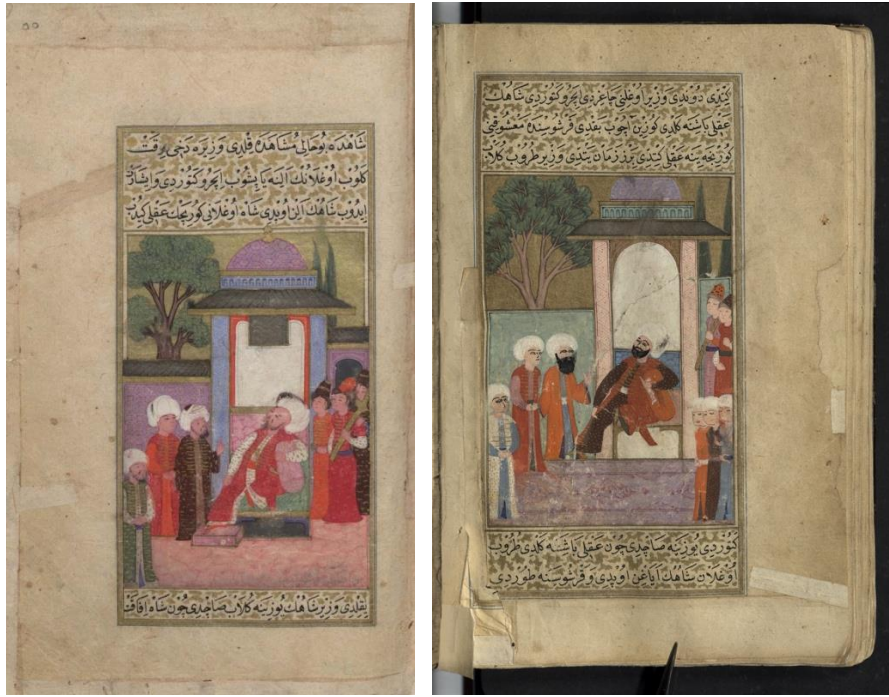 شاهده بو حالی مشاهده قلدی وزیره دخی بو وقت
کلوب اوغلانك الیه یاپشوب ایچرو کتوردی و اشارت
ایدوب شاهك الین اوپدی شاه اوغلانی کوریجك عقلی کیدوب
یقلدی وزیر شاهك یوزینه کلاب صاچدی چون شاه افاقت
کندی دوندی وزیر اوغلنی چاغردی ایچرو کتوردی شاهك
عقلی باشنه کلدی کوزین آچوب بقدی قرشوسنده معشوقنی
کوریجه ینه عقلی کتدی بر زمان یتدی وزیر طروب کلاب
کتوردی یوزینه صاچدی چون عقلی باشنه کلدی طروب
اوغلان شاهك ایاغن اوپدی و قرشوسنه طوردی